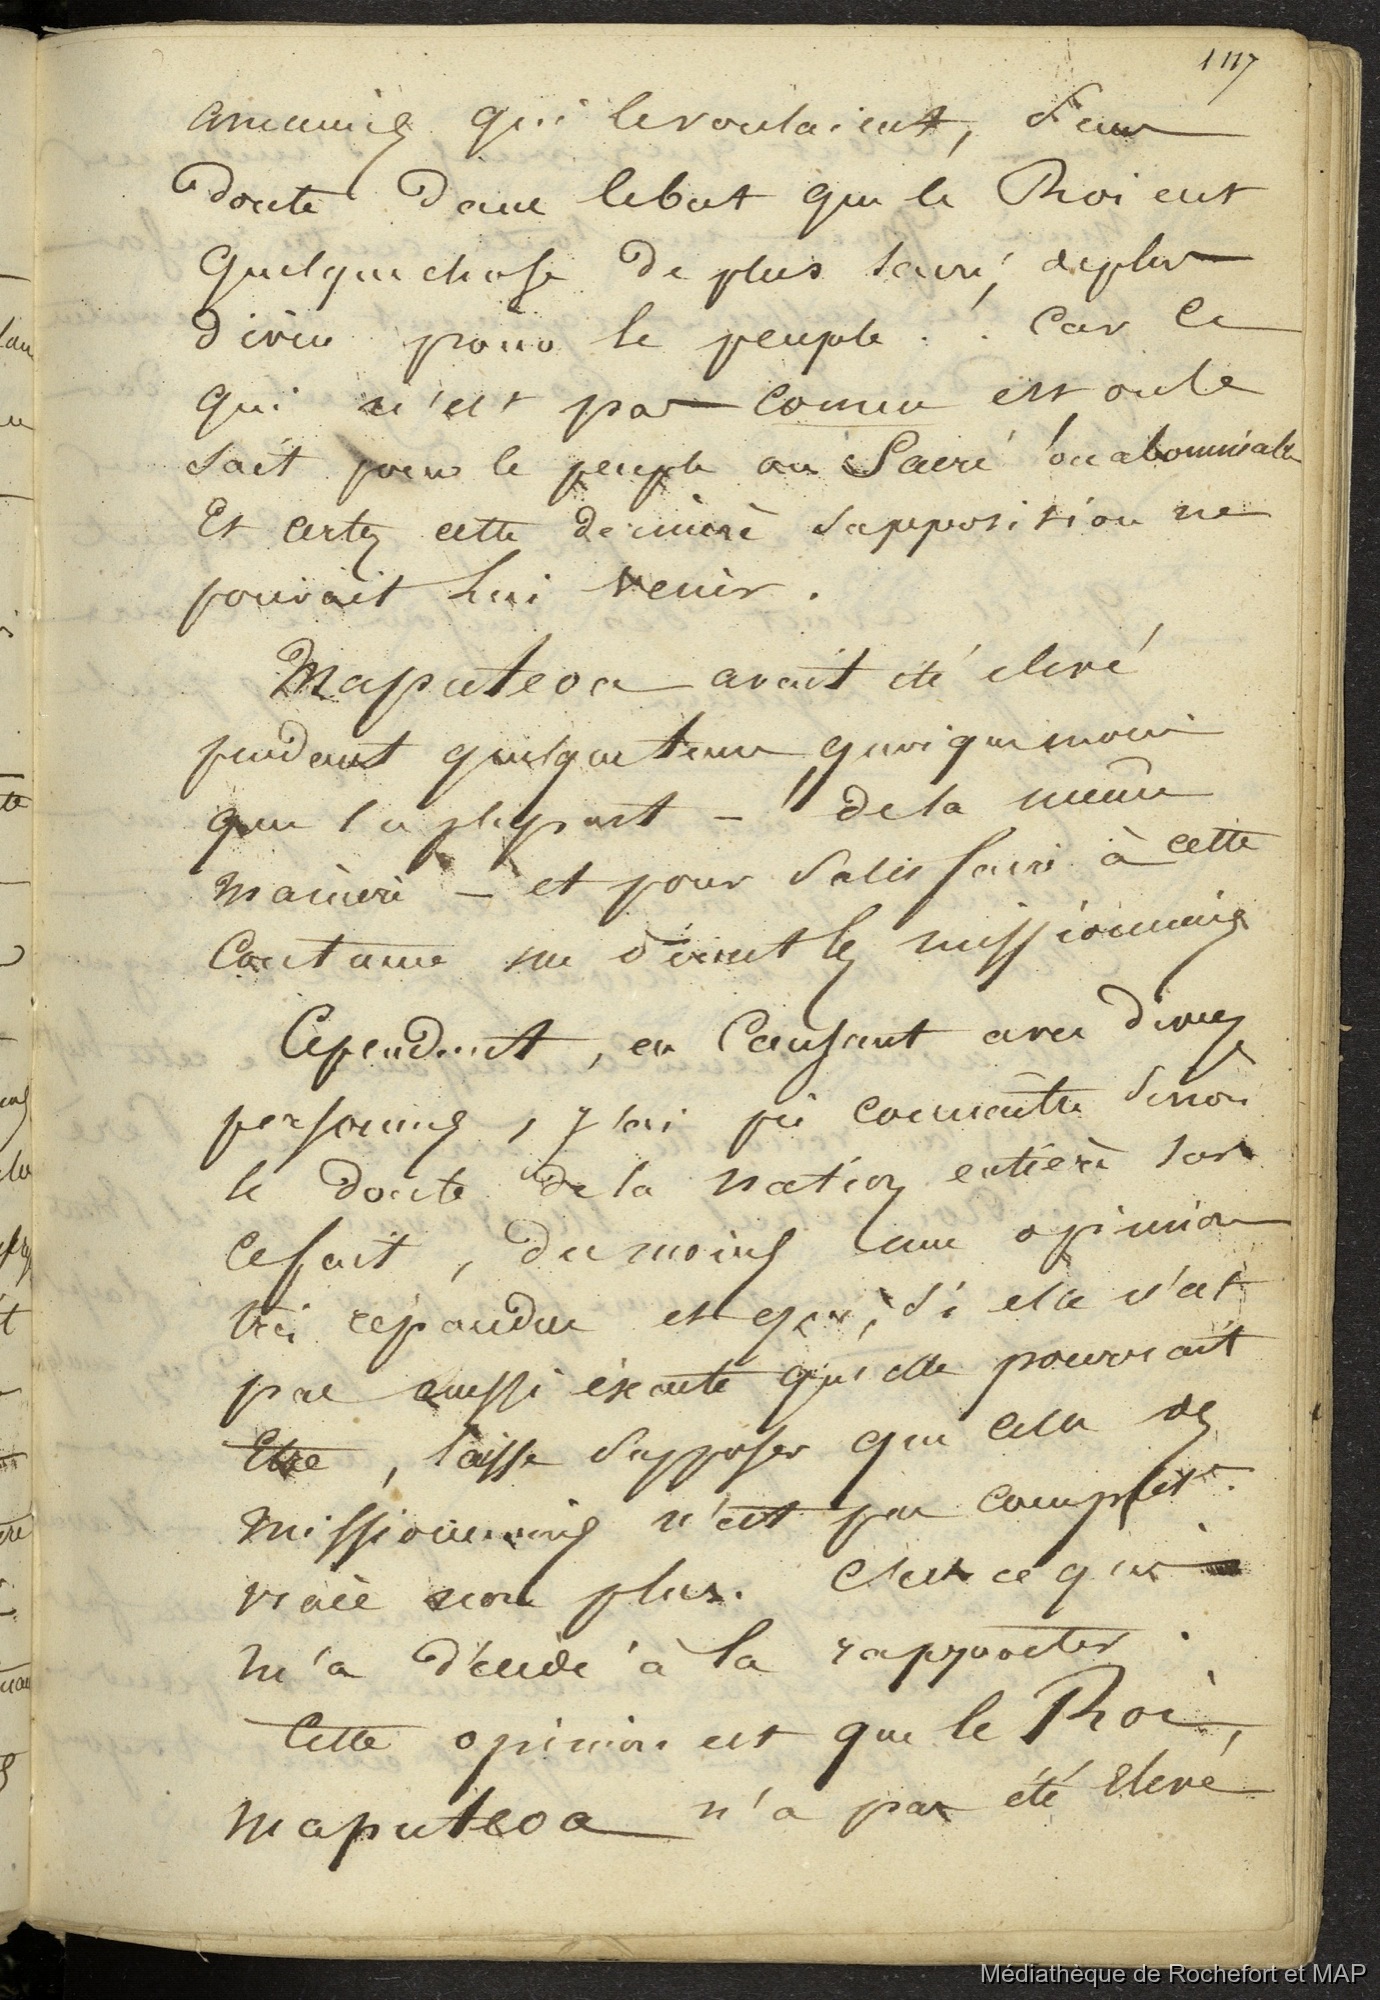 117
qui le voulaient, sans
doute dans le but que le Roi eut
quelque chose de plus sacré, de plus
divin pour le peuple. . Car ce
qui n'est pas connu est on le
sait pour le peuple ou Sacré ou abominable
Et certes cette dernière supposition ne
pouvait lui venir.
Maputeoa avait été élevé
pendant quelque tems quoique moins
que la plupart – de la même
manière – et pour satisfaire à cette
Coutume me dirent les missionnaires
Cependant, en Causant avec diverses
personnes, j'ai pu connaître sinon
le doute de la nation entière sur
ce fait, du moins une opinion
très répandue et qui, si elle n'est
pas aussi exacte qu'elle pourrait
Etre, laisse supposer que celle des
missionnaires n'est pas complet.
vraie non plus. C'est ce qui
m'a décidé à la rapporter.
Cette opinion est que le Roi,
maputeoa n'a pas été élevé
Médiathèque de Rochefort et MAP